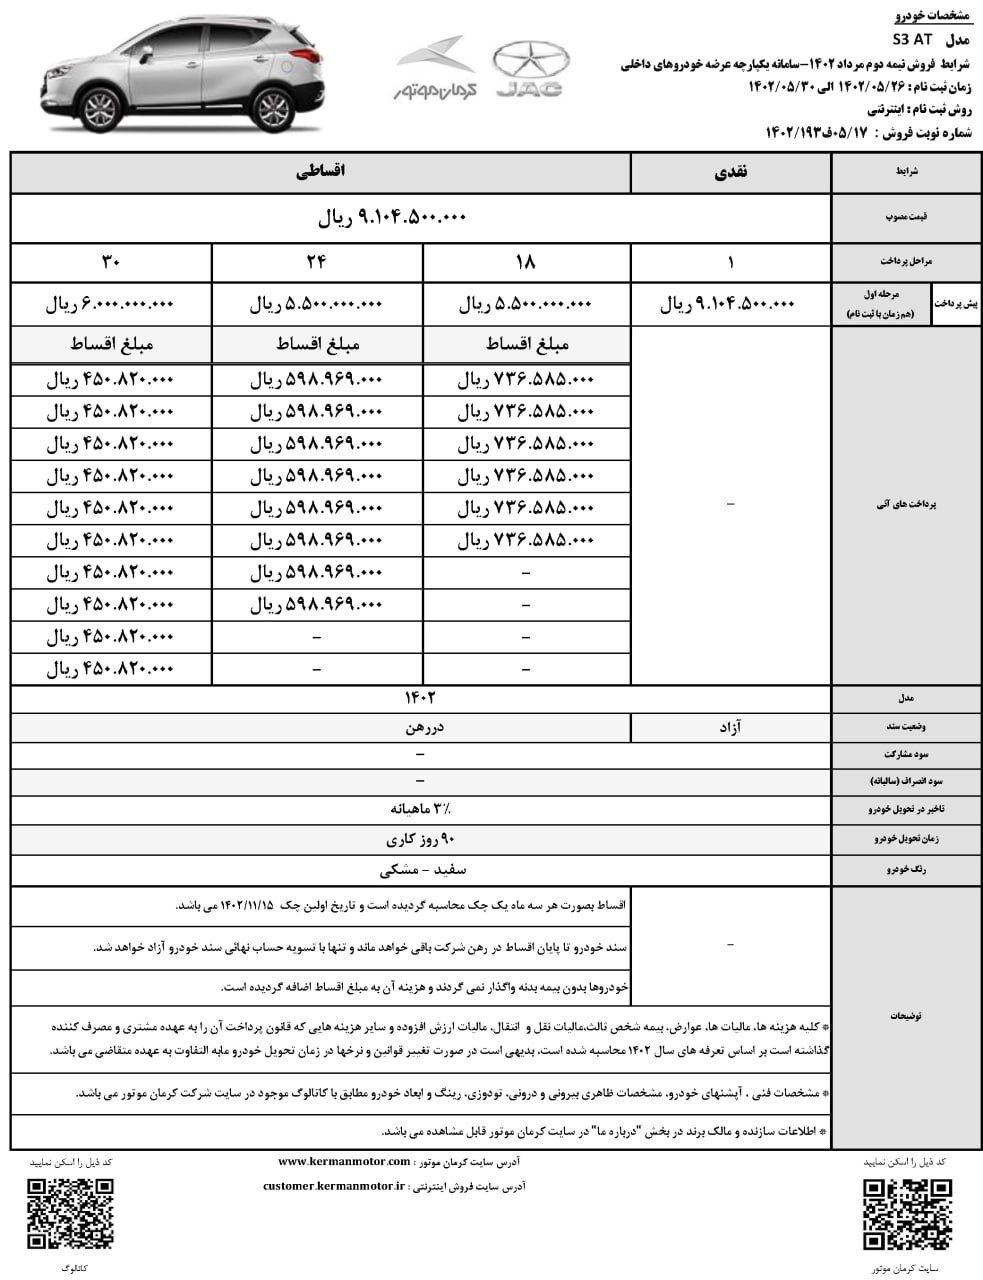 مشخصات خودرو
مدل S3 AT
شرایط فروش نیمه دوم مرداد ۱۴۰۲-سامانه یکپارچه عرضه خودروهای داخلی
زمان ثبت نام : ۱۴۰۲/۰۵/۲۶ الی ۱۴۰۲/۰۵/۳۰
روش ثبت نام : اینترنتی
شماره نوبت فروش : ۰۵/۱۷ف۱۴۰۲/۱۹۳
کرمان موتور
JAC
شرایط نقدی اقساطی
قیمت مصوب ۹.۱۰۴.۵۰۰.۰۰۰ ریال
مراحل پرداخت ۱ ۱۸ ۲۴ ۳۰
پیش پرداخت مرحله اول (هم زمان با ثبت نام) ۹.۱۰۴.۵۰۰.۰۰۰ ریال ۵.۵۰۰.۰۰۰.۰۰۰ ریال ۵.۵۰۰.۰۰۰.۰۰۰ ریال ۶.۰۰۰.۰۰۰.۰۰۰ ریال
مبلغ اقساط مبلغ اقساط مبلغ اقساط
۷۳۶.۵۸۵.۰۰۰ ریال ۵۹۸.۹۶۹.۰۰۰ ریال ۴۵۰.۸۲۰.۰۰۰ ریال
۷۳۶.۵۸۵.۰۰۰ ریال ۵۹۸.۹۶۹.۰۰۰ ریال ۴۵۰.۸۲۰.۰۰۰ ریال
۷۳۶.۵۸۵.۰۰۰ ریال ۵۹۸.۹۶۹.۰۰۰ ریال ۴۵۰.۸۲۰.۰۰۰ ریال
۷۳۶.۵۸۵.۰۰۰ ریال ۵۹۸.۹۶۹.۰۰۰ ریال ۴۵۰.۸۲۰.۰۰۰ ریال
پرداخت های آتی – ۷۳۶.۵۸۵.۰۰۰ ریال ۵۹۸.۹۶۹.۰۰۰ ریال ۴۵۰.۸۲۰.۰۰۰ ریال
۷۳۶.۵۸۵.۰۰۰ ریال ۵۹۸.۹۶۹.۰۰۰ ریال ۴۵۰.۸۲۰.۰۰۰ ریال
– ۵۹۸.۹۶۹.۰۰۰ ریال ۴۵۰.۸۲۰.۰۰۰ ریال
– ۵۹۸.۹۶۹.۰۰۰ ریال ۴۵۰.۸۲۰.۰۰۰ ریال
– – ۴۵۰.۸۲۰.۰۰۰ ریال
– – ۴۵۰.۸۲۰.۰۰۰ ریال
مدل ۱۴۰۲
وضعیت سند آزاد دررهن
سود مشارکت –
سود انصراف (سالیانه) –
تاخیر در تحویل خودرو ۳٪ ماهیانه
زمان تحویل خودرو ۹۰ روز کاری
رنگ خودرو سفید - مشکی
توضیحات
–
اقساط بصورت هر سه ماه یک چک محاسبه گردیده است و تاریخ اولین چک ۱۴۰۲/۱۱/۱۵ می باشد.
سند خودرو تا پایان اقساط در رهن شرکت باقی خواهد ماند و تنها با تسویه حساب نهائی سند خودرو آزاد خواهد شد.
خودروها بدون بیمه بدنه واگذار نمی گردند و هزینه آن به مبلغ اقساط اضافه گردیده است.
* کلیه هزینه ها، مالیات ها، عوارض، بیمه شخص ثالث،مالیات نقل و انتقال، مالیات ارزش افزوده و سایر هزینه هایی که قانون پرداخت آن را به عهده مشتری و مصرف کننده
گذاشته است بر اساس تعرفه های سال ۱۴۰۲ محاسبه شده است، بدیهی است در صورت تغییر قوانین و نرخها در زمان تحویل خودرو مابه التفاوت به عهده متقاضی می باشد.
* مشخصات فنی ، آپشنهای خودرو، مشخصات ظاهری بیرونی و درونی، تودوزی، رینگ و ابعاد خودرو مطابق با کاتالوگ موجود در سایت شرکت کرمان موتور می باشد.
* اطلاعات سازنده و مالک برند در بخش "درباره ما" در سایت کرمان موتور قابل مشاهده می باشد.
کد ذیل را اسکن نمایید
آدرس سایت کرمان موتور : www.kermanmotor.com
کد ذیل را اسکن نمایید
آدرس سایت فروش اینترنتی : customer.kermanmotor.ir
سایت کرمان موتور
کاتالوگ